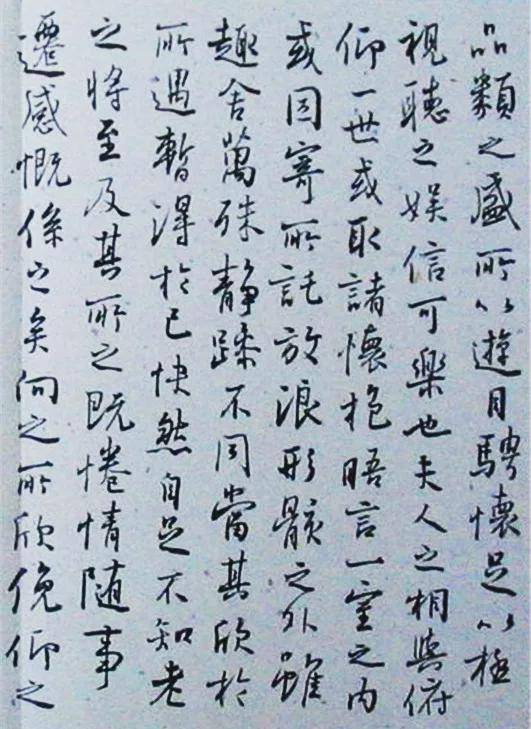 品類之盛所以遊目騁懷足以極
視聽之娛信可樂也夫人之相與俯
仰一世或取諸懷抱晤言一室之內
或因寄所託放浪形骸之外雖
趣舍萬殊靜躁不同當其欣於
所遇暫得於己快然自足不知老
之將至及其所之既惓情随事
遷感慨係之矣向之所欣俛仰之